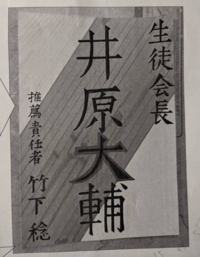 生徒会長
井原大輔
推薦責任者 竹下稔